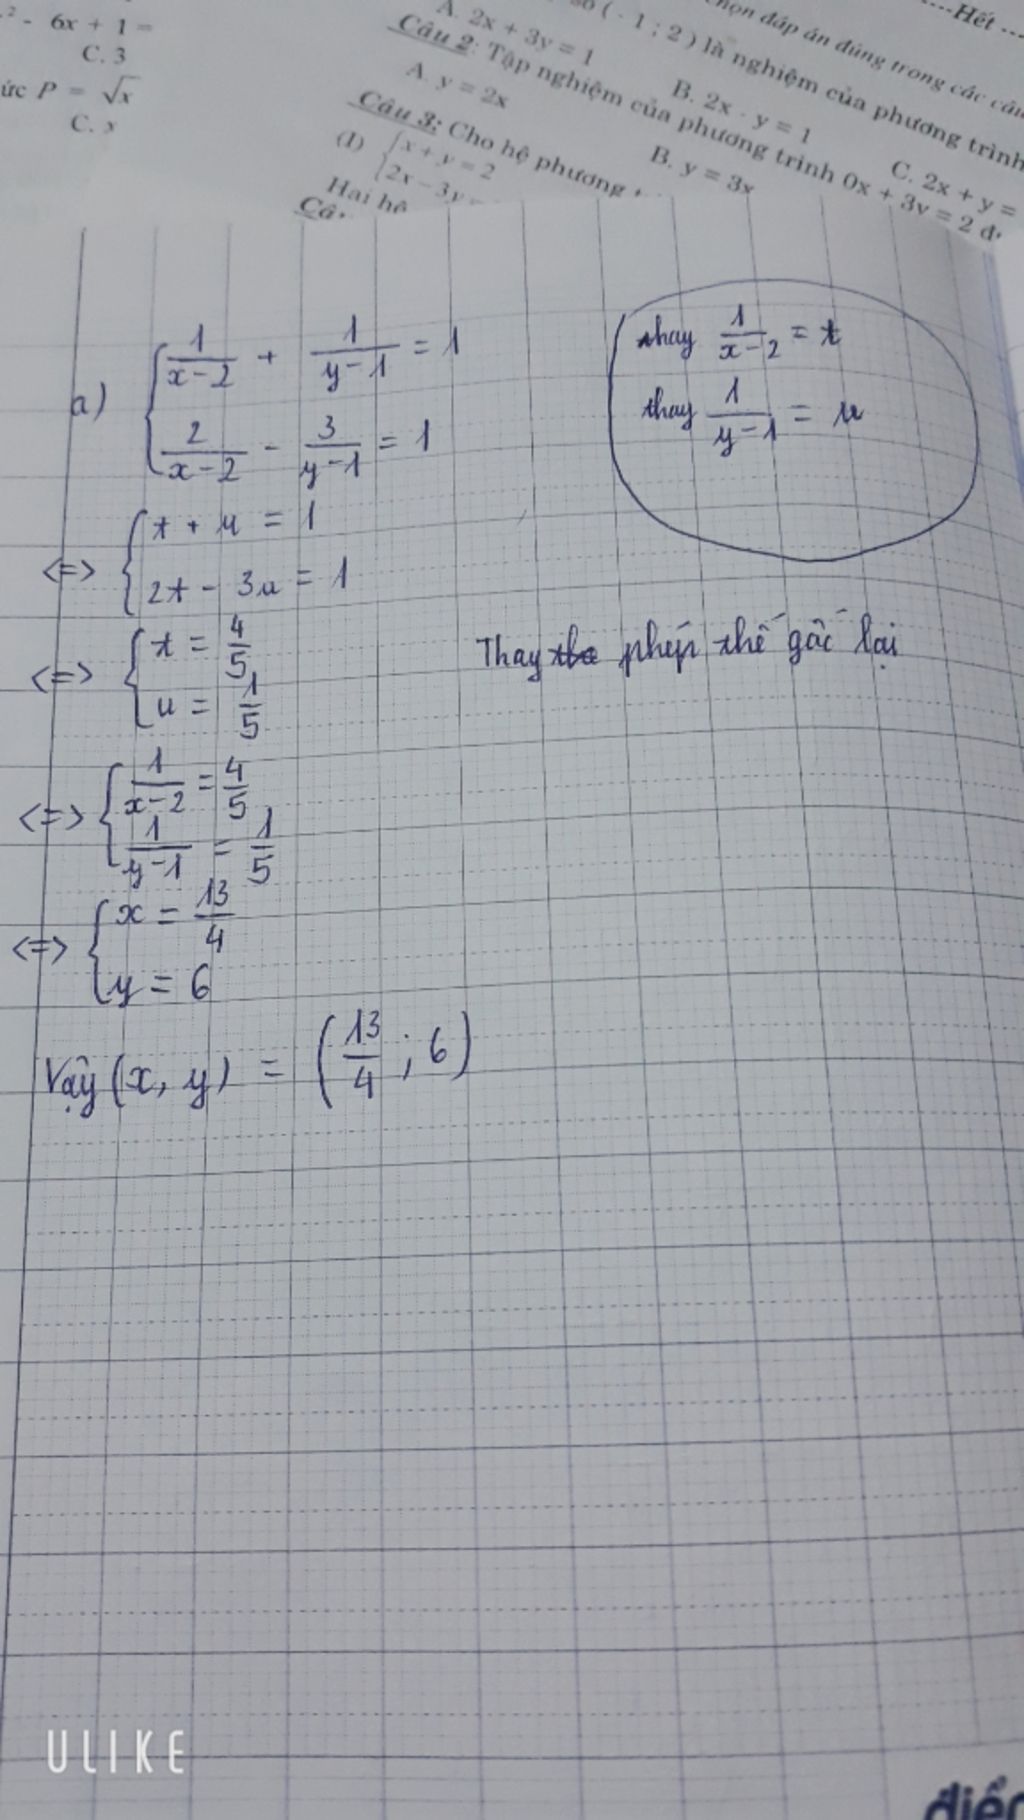 ² - 6x + 1 =
C. 3
ức P = √x
C.
Hết
chọn đáp án đúng trong các câu
số ( - 1 ; 2 ) là nghiệm của phương trình
A. 2x + 3y = 1
B. 2x - y = 1
C. 2x + y =
Câu 2: Tập nghiệm của phương trình 0x + 3y = 2 đ
A. y = 2x
B. y = 3x
Câu 3: Cho hệ phương
(I) { x + y = 2
2x - 3y =
Hai hệ
a) { 1/(x-2) + 1/(y-1) = 1
2/(x-2) - 3/(y-1) = 1
thay 1/(x-2) = t
thay 1/(y-1) = u
<=> { t + u = 1
2t - 3u = 1
<=> { t = 4/5
u = 1/5
Thay phép thế gác lại
<=> { 1/(x-2) = 4/5
1/(y-1) = 1/5
<=> { x = 13/4
y = 6
Vậy (x, y) = (13/4 ; 6)
ULIKE